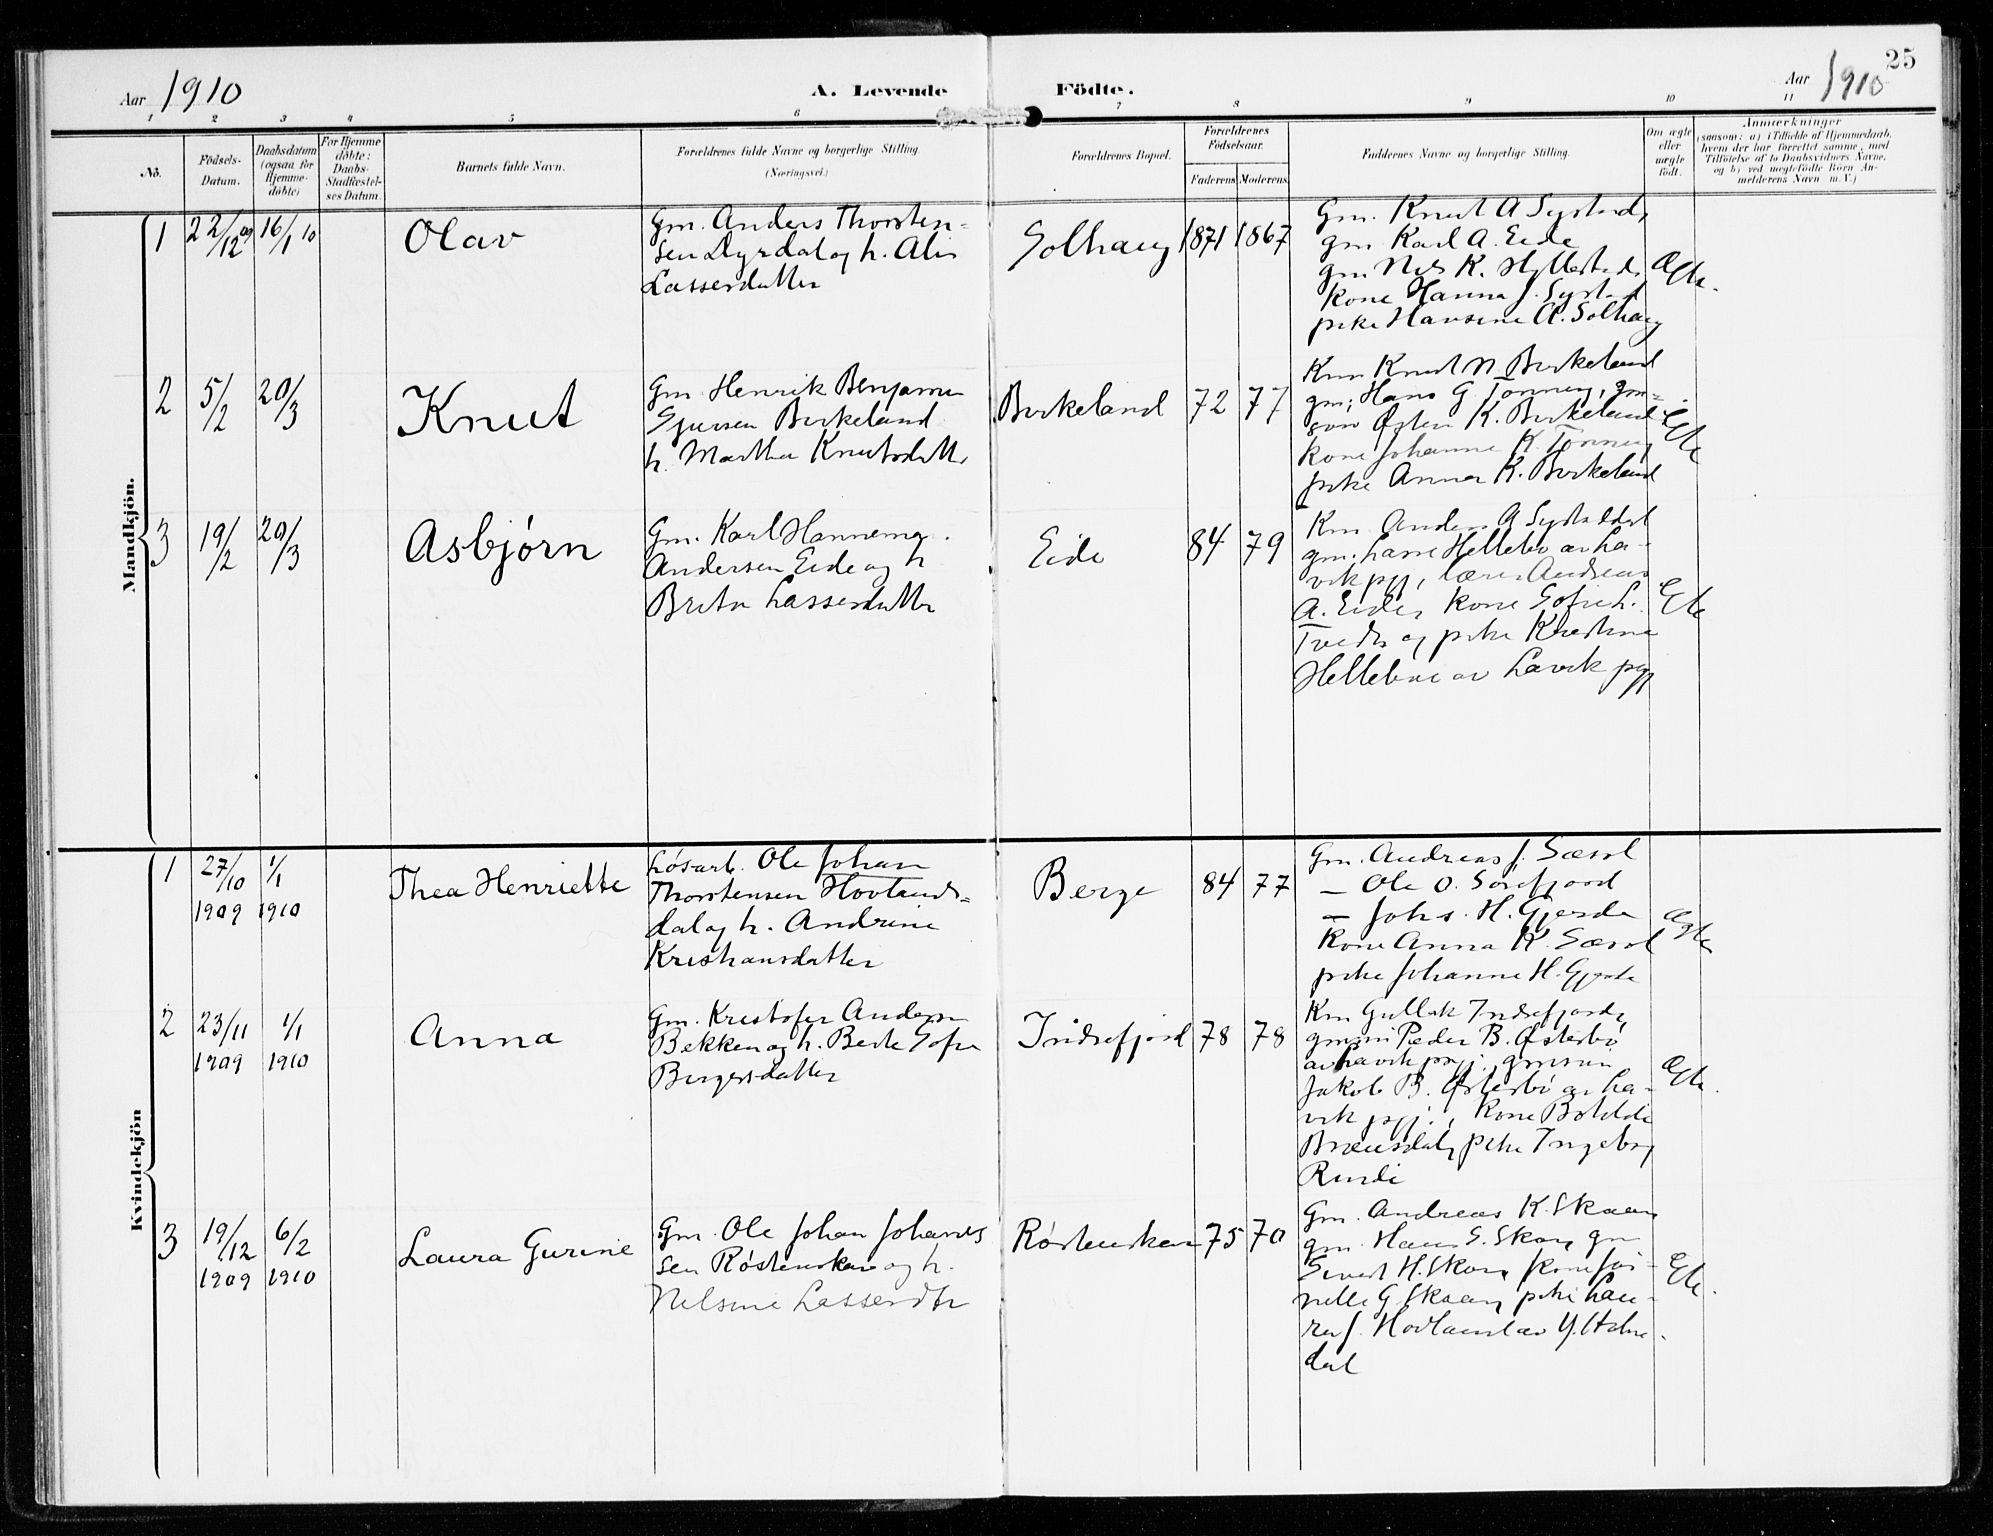 25
Aar 1910
A. Levende Födte.
Aar 1910
1 2 3 4 5 6 7 8 9 10 11
No.
Födsels-Datum.
Daabsdatum (ogsaa for Hjemme-döbte)
For Hjemme döbte: Daabs-Stadfæstelses Datum.
Barnets fulde Navn.
Forældrenes fulde Navne og borgerlige Stilling.
(Næringsvei.)
Forældrenes Bopæl.
Forældrenes Födselsaar.
Faderens Moderens
Faddernes Navne og borgerlige Stilling.
Om ægte eller uægte födt.
Anmærkninger
(saasom: a) i Tilfælde af Hjemmedaab,
hvem der har forrettet samme, med
Tilföielse af to Daabsvidners Navne,
og b) ved uægtefödte Börn An-
melderens Navn m. V.)
Mandkjön.
1 22/12 09 16/1 10
Olav
Gm. Anders Thorsten-
sen Dyrdal og h.
Lassesdatter
Solhaug 1871 1867
Gm. Knut A Systad,
gm. Karl A. Eide
gm. Nils K. Hyllestad,
Kone Hanna J. Systad
pike Hansine A. Solhaug
Ægte.
2 5/2 20/3
Knut
Gm. Henrik Benjamin
Sjursen Birkeland
h. Martha Knutsdatter
Birkeland 72 77
Km Knut N Birkeland
gm; Hans G. , gm-
søn Østen K. Birkeland
Kone Johanne K.
pike Anna K. Birkeland
Egte
3 19/2 20/3
Asbjørn
Gm. Karl
Andersen Eide og h
Brita Lassesdatter
Eide 84 79
Km. Anders A
gm. Lasse Hellebø av La-
vik pgj, lærer Andreas
A. Eide, Kone Sofie L.
og pike Kristine
av Lavik pgj
Egte
Kvindekjön
1 27/10 1909 1/1 1910
Thea Henriette
Løsarb. Ole Johan
Thorstensen Hovlands-
dal og h. Andrine
Kristiansdatter
Berge 84 77
Gm. Andreas J. Sæsol
— Ole O. Sørefjord
— Johs. H. Gjerde
Kone Anna K. Sæsol
pike Johanne H. Gjerde
Ægte
2 23/11 1909 1/1 1910
Anna
Gm. Kristofer Anders
Bekken og h. Berte Sofie
Birgersdatter
Indrefjord 78 78
Km Indrefjord,
Peder B. Østerbø
av Lavik pgj., gmsøn
Jakob B. Østerbø av La-
vik pgj., Kone
pike Ingeborg
Risnde
Ægte.
3 19/12 1909 6/2 1910
Laura Gurine
Gm. Ole Johan Johannes
sen og h.
Nelsine Lassesdtr
75 70
Gm. Andreas K. Skaar
gm. Hans S. gm
Sivert H. Kone Jør-
nelle G Skaar, pike Lau-
ra J. Hovland av Y. Holme-
dal
Egte.